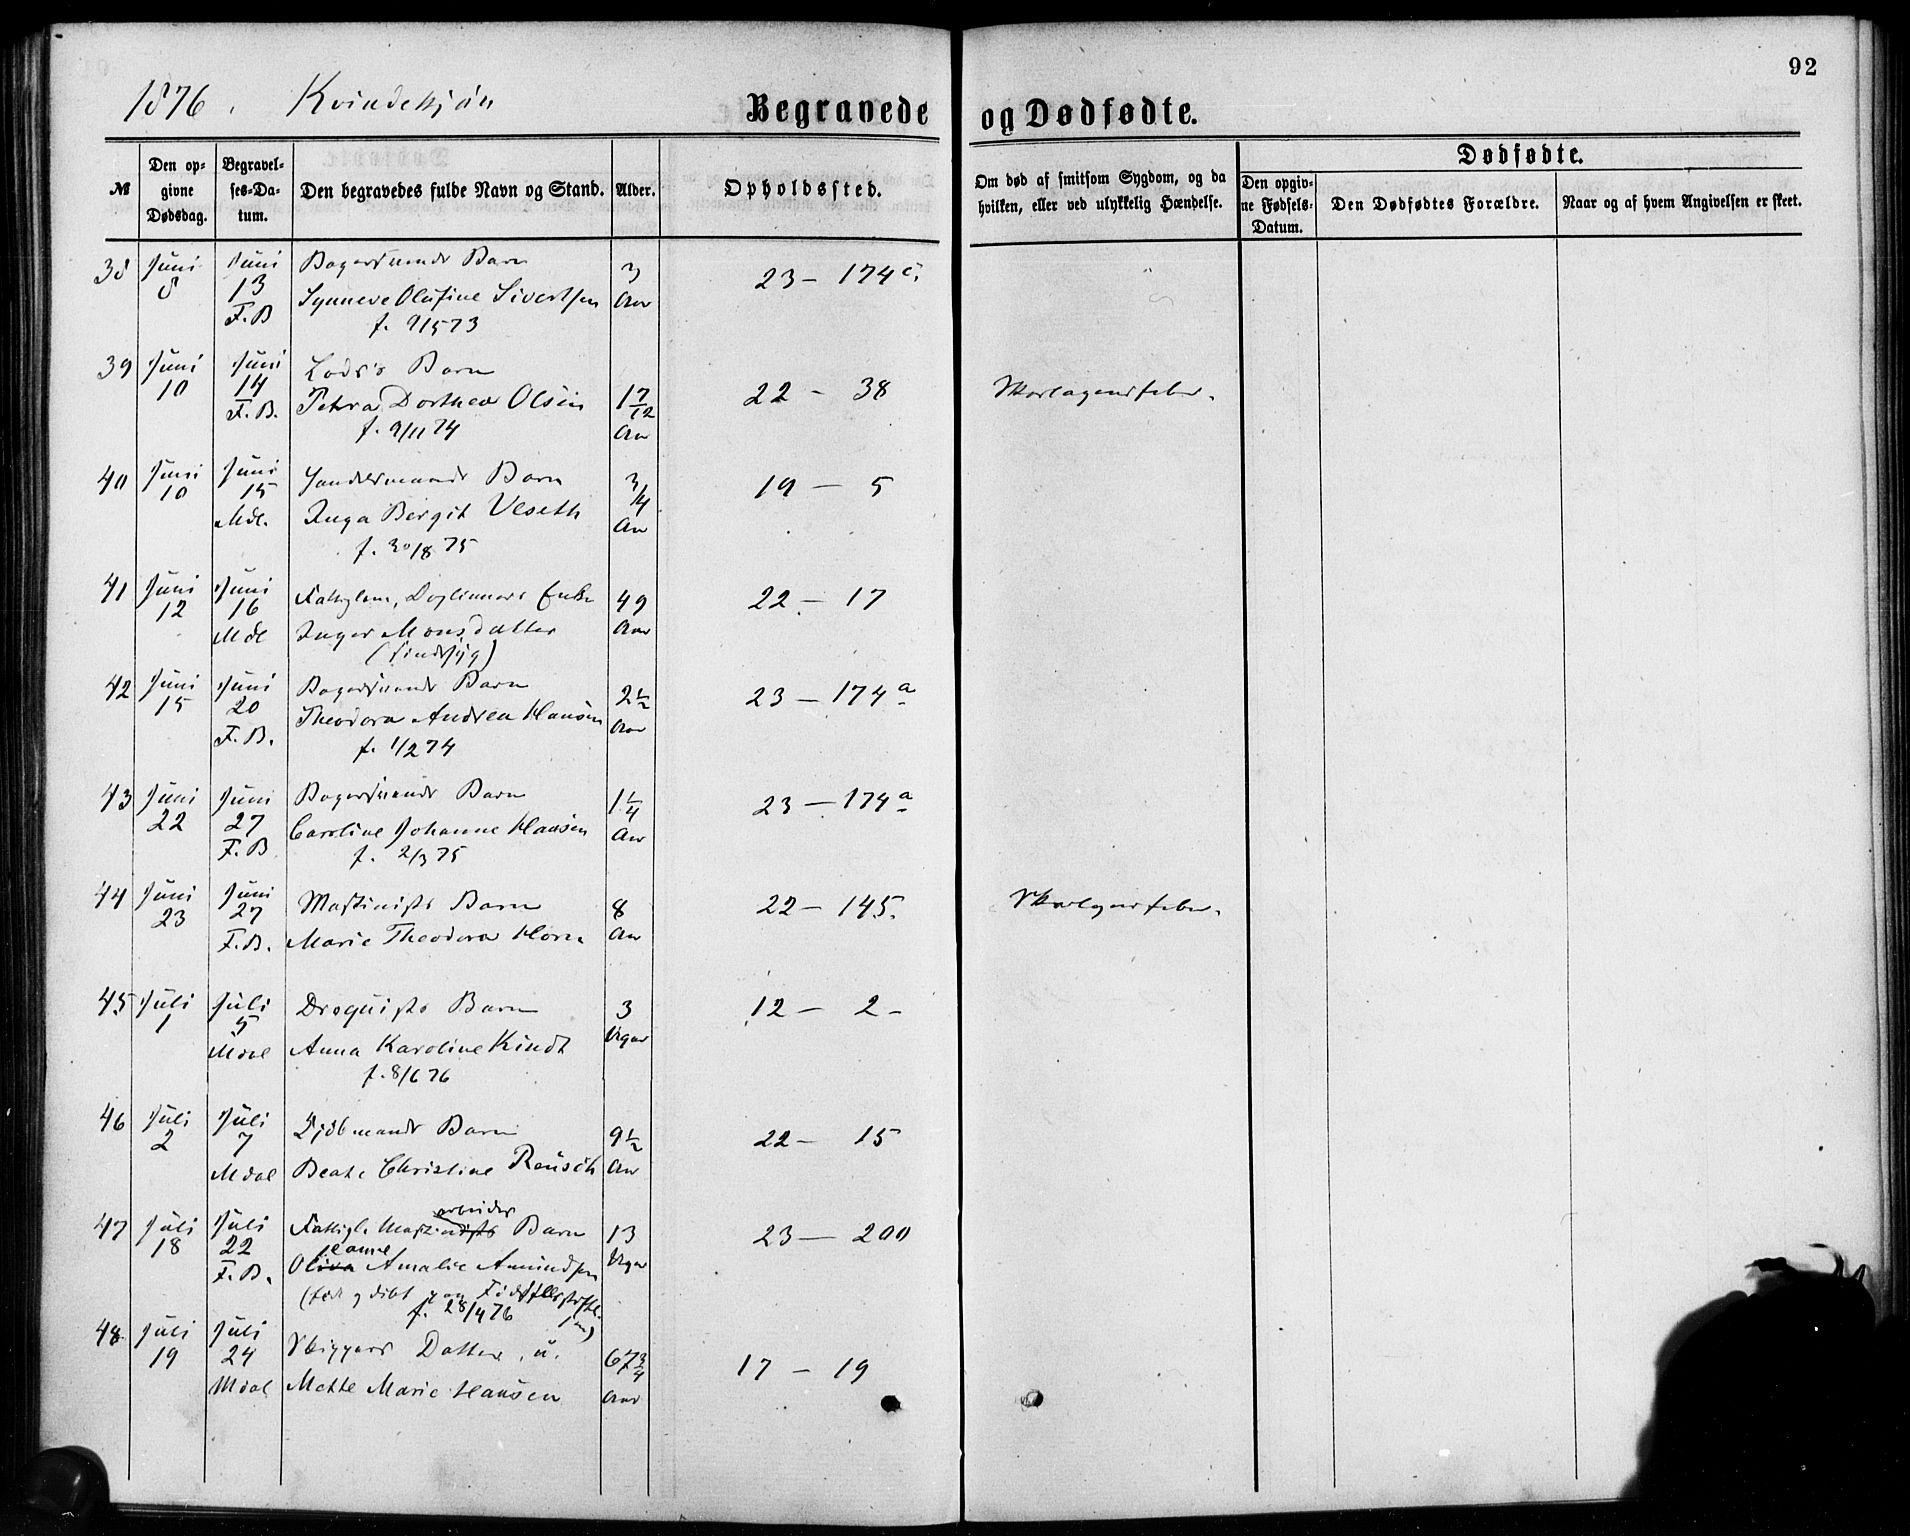 92
1876. Kvindekjøn
Begravede og Dødfødte.
№
Den opgivne Dødsdag.
Begravelses-Datum.
Den begravedes fulde Navn og Stand.
Alder.
Opholdssted.
Om død af smitsom Sygdom, og da hvilken, eller ved ulykkelig Hændelse.
Dødfødte.
Den opgivne Fødsels-Datum.
Den Dødfødtes Forældre.
Naar og af hvem Angivelsen er skeet.
38 Juni 8 Juni 13 F.B Bagersvends Barn 3 Aar 23 — 174 c.
Synneve Olufine Sivertsen
f. 9/5 73
39 Juni 10 Juni 14 F.B. Lods's Barn 1 7/12 Aar 22 - 38 Skarlagensfeber.
Petra Dorthea Olsen
f. 9/11 74
40 Juni 10 Juni 15 Mdl. Handelsmands Barn 3/4 Aar 19 — 5
Inga Bergit Veseth
f. 30/8 75
41 Juni 12 Juni 16 Mdl Fattiglem, Daglönners Enke 49 Aar 22 — 17
Inger Monsdatter
(sindssyg)
42 Juni 15 Juni 20 F.B. Bagersvends Barn 2 1/2 Aar 23 — 174 a
Theodora Andrea Hansen
f. 1/2 74
43 Juni 22 Juni 27 F.B Bagersvends Barn 1 1/4 Aar 23 — 174 a
Caroline Johanne Hansen
f. 2/3 75
44 Juni 23 Juni 27 F.B. Maskinists Barn 8 Aar 22 — 145. Skarlagensfeber.
Marie Theodora Horn
45 Juli 1 Juli 5 Mdal Droguists Barn 3 Uger 12 — 2 -
Anna Karoline Kindt
f. 8/6 76
46 Juli 2 Juli 7 Mdal Barn 9 1/2 Aar 22 — 15
Beate Christine Reusch
47 Juli 18 Juli 22 F.B. Fattigl. Maskinists arbeider Barn 13 Uger 23 — 200
Oliva Amalie Amundsen
(født og døbt paa Fødselsstiftelsen)
f. 28/4 76
48 Juli 19 Juli 24 Mdal Skippers Datter, u. 67 3/4 Aar 17 — 19
Mette Marie Hansen